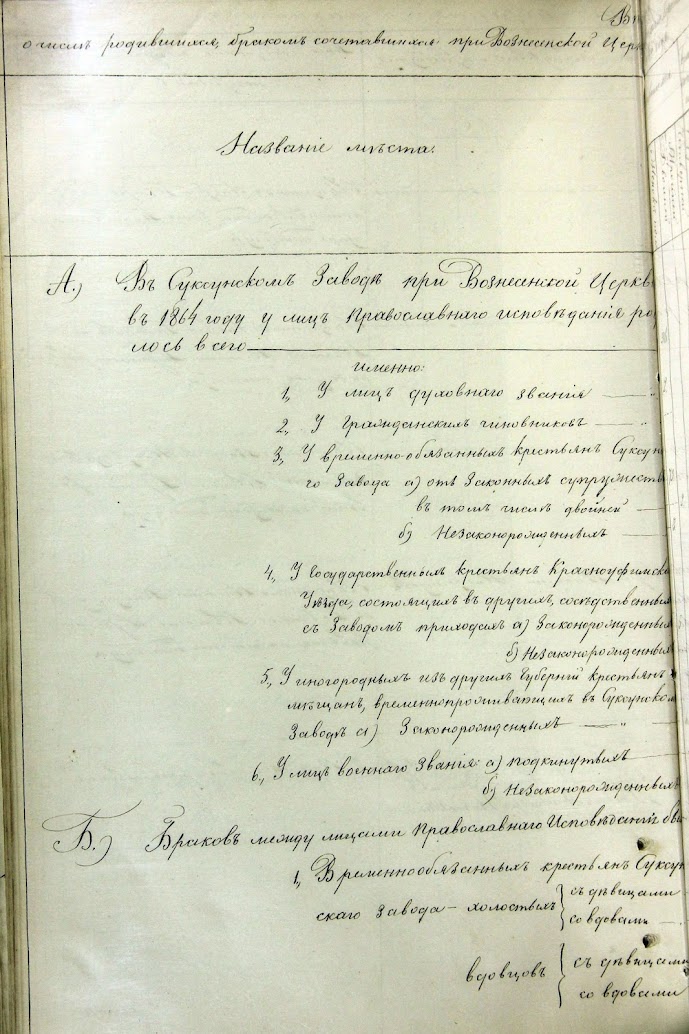 о числѣ родившихся, бракомъ сочетавшихся при Вознесенской Церк
Названіе мѣста:
А.) Въ Суксунскомъ Заводѣ при Вознесенской Церкв
въ 1864 году у лицъ Православнаго исповѣданія ро
лось всего
именно:
1., У лицъ духовнаго званія — „
2., У Гражданскихъ чиновниковъ —
3., У временно-обязанныхъ крестьян Суксун
го Завода а) отъ Законныхъ супружеств
въ томъ числѣ двойней —
б) Незаконорожденныхъ —
4., У Государственныхъ крестьянъ Красноуфимска
Уѣзда, состоящихъ въ другихъ, сосѣдственныхъ
съ Заводомъ приходахъ а) Законорожденныхъ
б) Незаконорожденныхъ
5., У иногородныхъ изъ другихъ Губерній крестьянъ
мѣщанъ, временнопроживающихъ въ Суксунском
Заводѣ а) Законорожденныхъ — „ —
6., У лицъ военнаго Званія: а) подкинутыхъ —
б) Незаконорожденныхъ
Б.) Браковъ между лицами Православнаго Исповѣданія
1., Временнообязанныхъ крестьянъ Суксун
скаго Завода – холостыхъ { съ дѣвицами
со вдовами —
вдовцовъ { съ дѣвицами
со вдовами